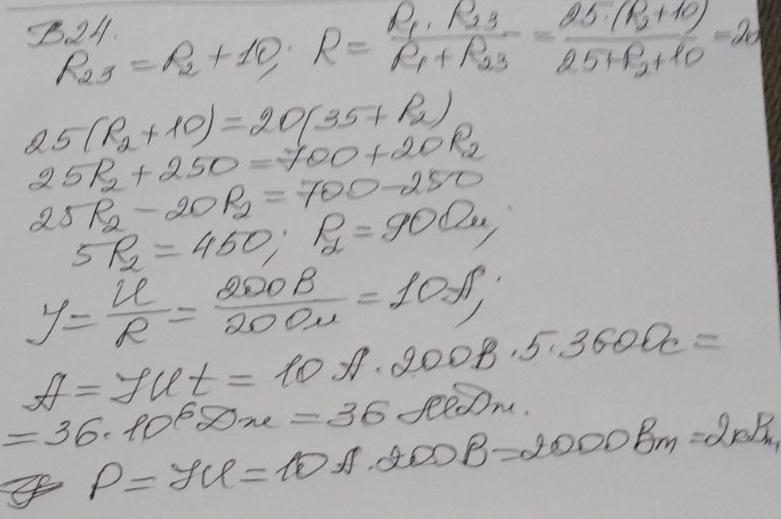 В24.
R₂₃ = R₂ + 10; R = \frac{R₁ · R₂₃}{R₁ + R₂₃} = \frac{25 · (R₂ + 10)}{25 + R₂ + 10} = 20
25(R₂ + 10) = 20(35 + R₂)
25R₂ + 250 = 700 + 20R₂
25R₂ - 20R₂ = 700 - 250
5R₂ = 450; R₂ = 90 Ом;
J = \frac{U}{R} = \frac{200В}{20 Ом} = 10А;
A = JUt = 10 А · 200В · 5 · 3600с =
= 36 · 10⁶ Дж = 36 МДж.
P = JU = 10А · 200В = 2000Вт = 2кВт,